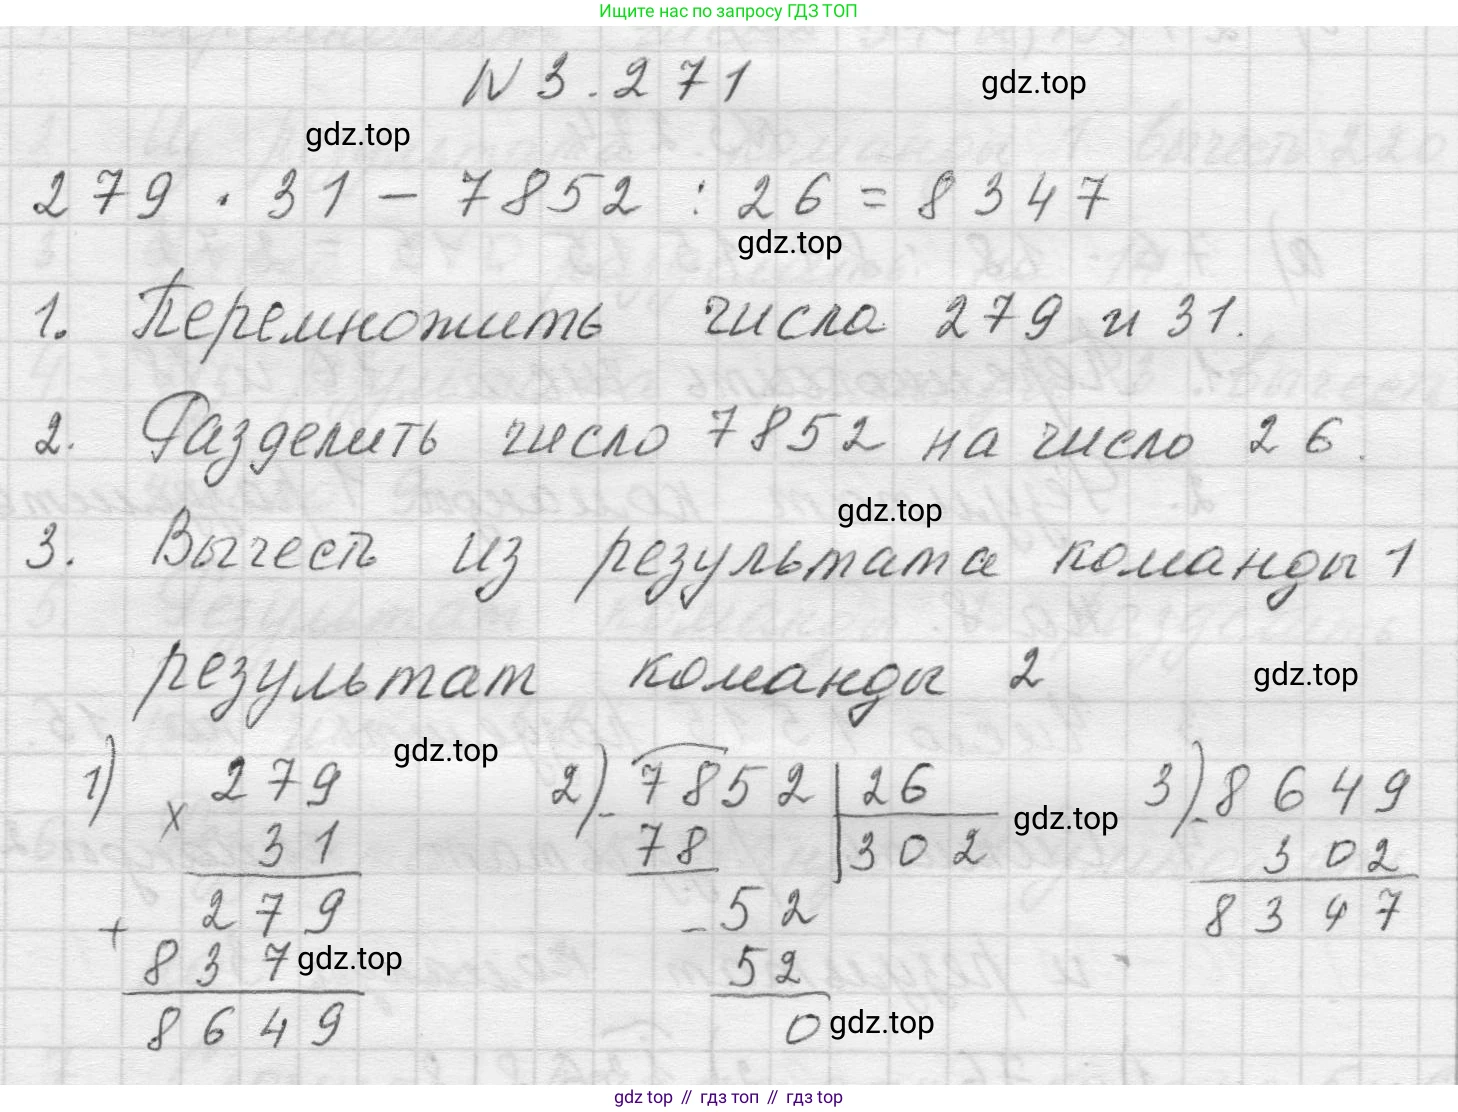 Ищите нас по запросу ГДЗ ТОП
N 3.271
gdz.top
gdz.top
279 · 31 − 7852 : 26 = 8347
gdz.top
1. Перемножить числа 279 и 31.
2. Разделить число 7852 на число 26.
gdz.top
3. Вычесть из результата команды 1
результат команды 2
gdz.top
gdz.top
1) 279
× 31
279
+ 837
8649
gdz.top
2) − 7852 | 26
78 302
− 52
52
0
gdz.top
gdz.top
3) − 8649
302
8347
gdz top // гдз топ // гдз top